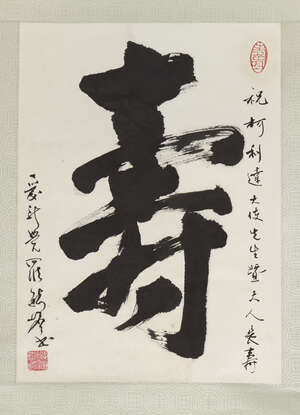 祝柯利達大使先生暨夫人長壽
壽
愛新覺羅毓嶦書